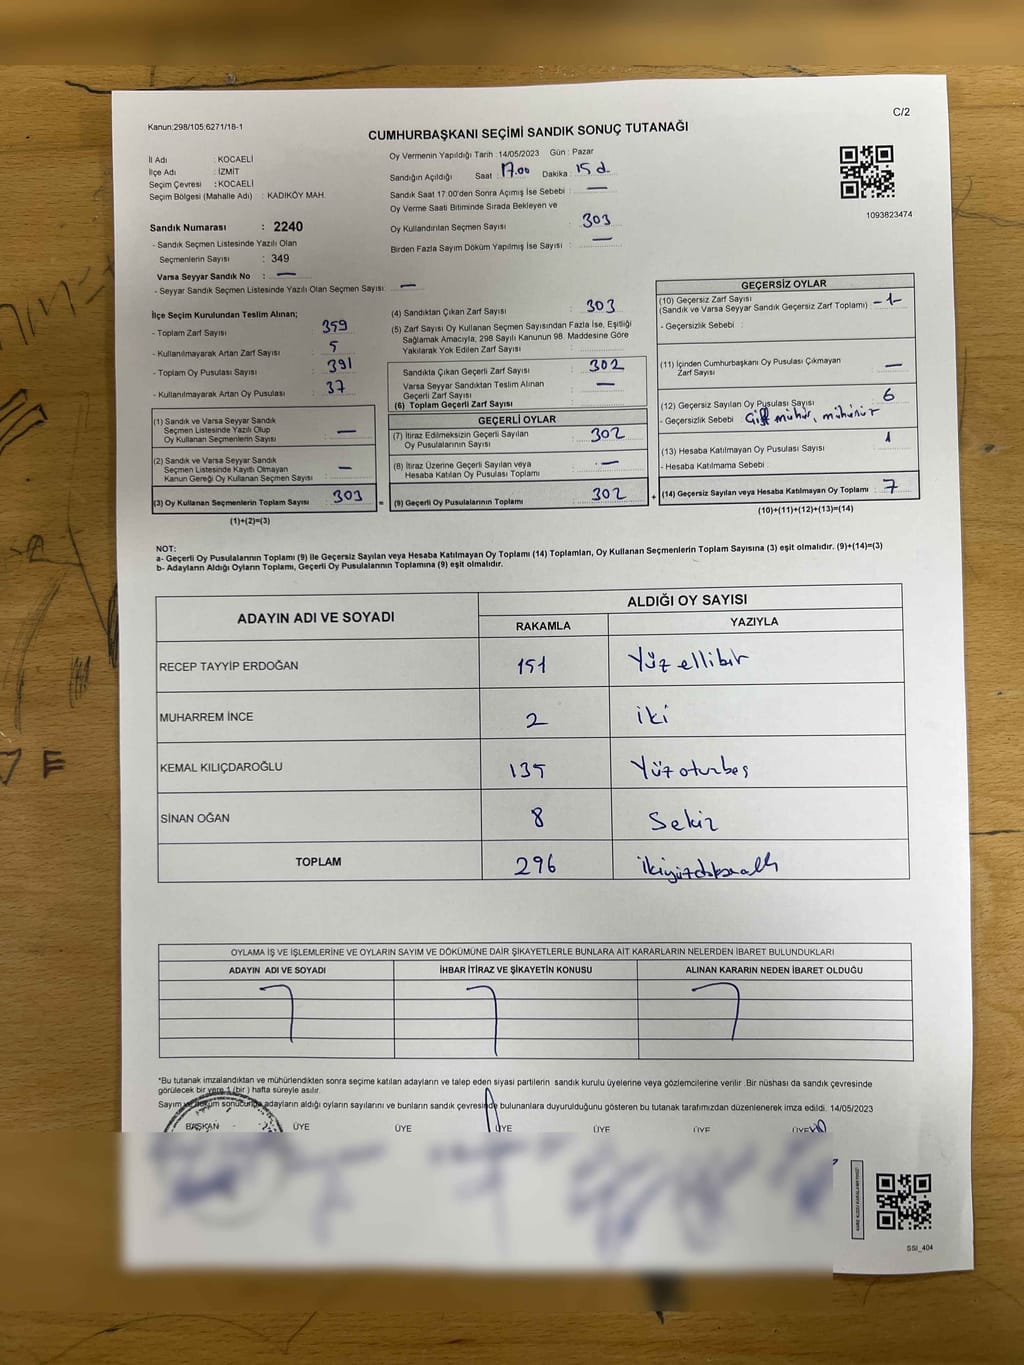 Kanun:298/105;6271/18-1
C/2
CUMHURBAŞKANI SEÇİMİ SANDIK SONUÇ TUTANAĞI
İl Adı : KOCAELİ
İlçe Adı : İZMİT
Seçim Çevresi : KOCAELİ
Seçim Bölgesi (Mahalle Adı) : KADIKÖY MAH.
Sandık Numarası : 2240
- Sandık Seçmen Listesinde Yazılı Olan
Seçmenlerin Sayısı : 349
Varsa Seyyar Sandık No : —
- Seyyar Sandık Seçmen Listesinde Yazılı Olan Seçmen Sayısı: —
Oy Vermenin Yapıldığı Tarih : 14/05/2023 Gün : Pazar
Sandığın Açıldığı Saat : 17.00 Dakika : 15 d.
Sandık Saat 17.00'den Sonra Açımış İse Sebebi : —
Oy Verme Saati Bitiminde Sırada Bekleyen ve
Oy Kullandırılan Seçmen Sayısı : 303
Birden Fazla Sayım Döküm Yapılmış İse Sayısı : —
1093823474
İlçe Seçim Kurulundan Teslim Alınan;
- Toplam Zarf Sayısı : 359
- Kullanılmayarak Artan Zarf Sayısı : 5
- Toplam Oy Pusulası Sayısı : 391
- Kullanılmayarak Artan Oy Pusulası : 37
(1) Sandık ve Varsa Seyyar Sandık
Seçmen Listesinde Yazılı Olup
Oy Kullanan Seçmenlerin Sayısı : —
(2) Sandık ve Varsa Seyyar Sandık
Seçmen Listesinde Kayıtlı Olmayan
Kanun Gereği Oy Kullanan Seçmen Sayısı : —
(3) Oy Kullanan Seçmenlerin Toplam Sayısı : 303 =
(1)+(2)=(3)
(4) Sandıktan Çıkan Zarf Sayısı : 303
(5) Zarf Sayısı Oy Kullanan Seçmen Sayısından Fazla İse, Eşitliği
Sağlamak Amacıyla, 298 Sayılı Kanunun 98. Maddesine Göre
Yakılarak Yok Edilen Zarf Sayısı :
Sandıkta Çıkan Geçerli Zarf Sayısı : 302
Varsa Seyyar Sandıktan Teslim Alınan
Geçerli Zarf Sayısı : —
(6) Toplam Geçerli Zarf Sayısı :
GEÇERLİ OYLAR
(7) İtiraz Edilmeksizin Geçerli Sayılan
Oy Pusulalarının Sayısı : 302
(8) İtiraz Üzerine Geçerli Sayılan veya
Hesaba Katılan Oy Pusulası Toplamı : —
(9) Geçerli Oy Pusulalarının Toplamı : 302 +
GEÇERSİZ OYLAR
(10) Geçersiz Zarf Sayısı
(Sandık ve Varsa Seyyar Sandık Geçersiz Zarf Toplamı) : -1-
- Geçersizlik Sebebi :
(11) İçinden Cumhurbaşkanı Oy Pusulası Çıkmayan
Zarf Sayısı : —
(12) Geçersiz Sayılan Oy Pusulası Sayısı : 6
- Geçersizlik Sebebi : Çift mühür, mühürsür
(13) Hesaba Katılmayan Oy Pusulası Sayısı : 1
- Hesaba Katılmama Sebebi :
(14) Geçersiz Sayılan veya Hesaba Katılmayan Oy Toplamı : 7
(10)+(11)+(12)+(13)=(14)
NOT:
a- Geçerli Oy Pusulalarının Toplamı (9) ile Geçersiz Sayılan veya Hesaba Katılmayan Oy Toplamı (14) Toplamları, Oy Kullanan Seçmenlerin Toplam Sayısına (3) eşit olmalıdır. (9)+(14)=(3)
b- Adayların Aldığı Oyların Toplamı, Geçerli Oy Pusulalarının Toplamına (9) eşit olmalıdır.
ADAYIN ADI VE SOYADI
ALDIĞI OY SAYISI
RAKAMLA YAZIYLA
RECEP TAYYİP ERDOĞAN 151 Yüz ellibir
MUHARREM İNCE 2 iki
KEMAL KILIÇDAROĞLU 135 Yüzoturbeş
SİNAN OĞAN 8 Sekiz
TOPLAM 296 ikiyüzdoksanaltı
OYLAMA İŞ VE İŞLEMLERİNE VE OYLARIN SAYIM VE DÖKÜMÜNE DAİR ŞİKAYETLERLE BUNLARA AİT KARARLARIN NELERDEN İBARET BULUNDUKLARI
ADAYIN ADI VE SOYADI İHBAR İTİRAZ VE ŞİKAYETİN KONUSU ALINAN KARARIN NEDEN İBARET OLDUĞU
*Bu tutanak imzalandıktan ve mühürlendikten sonra seçime katılan adayların ve talep eden siyasi partilerin sandık kurulu üyelerine veya gözlemcilerine verilir .Bir nüshası da sandık çevresinde
görülecek bir yere 1 (bir ) hafta süreyle asılır.
Sayım ve döküm sonucunda adayların aldığı oyların sayılarını ve bunların sandık çevresinde bulunanlara duyurulduğunu gösteren bu tutanak tarafımızdan düzenlenerek imza edildi. 14/05/2023
BAŞKAN ÜYE ÜYE ÜYE ÜYE ÜYE ÜYE
SSI_404